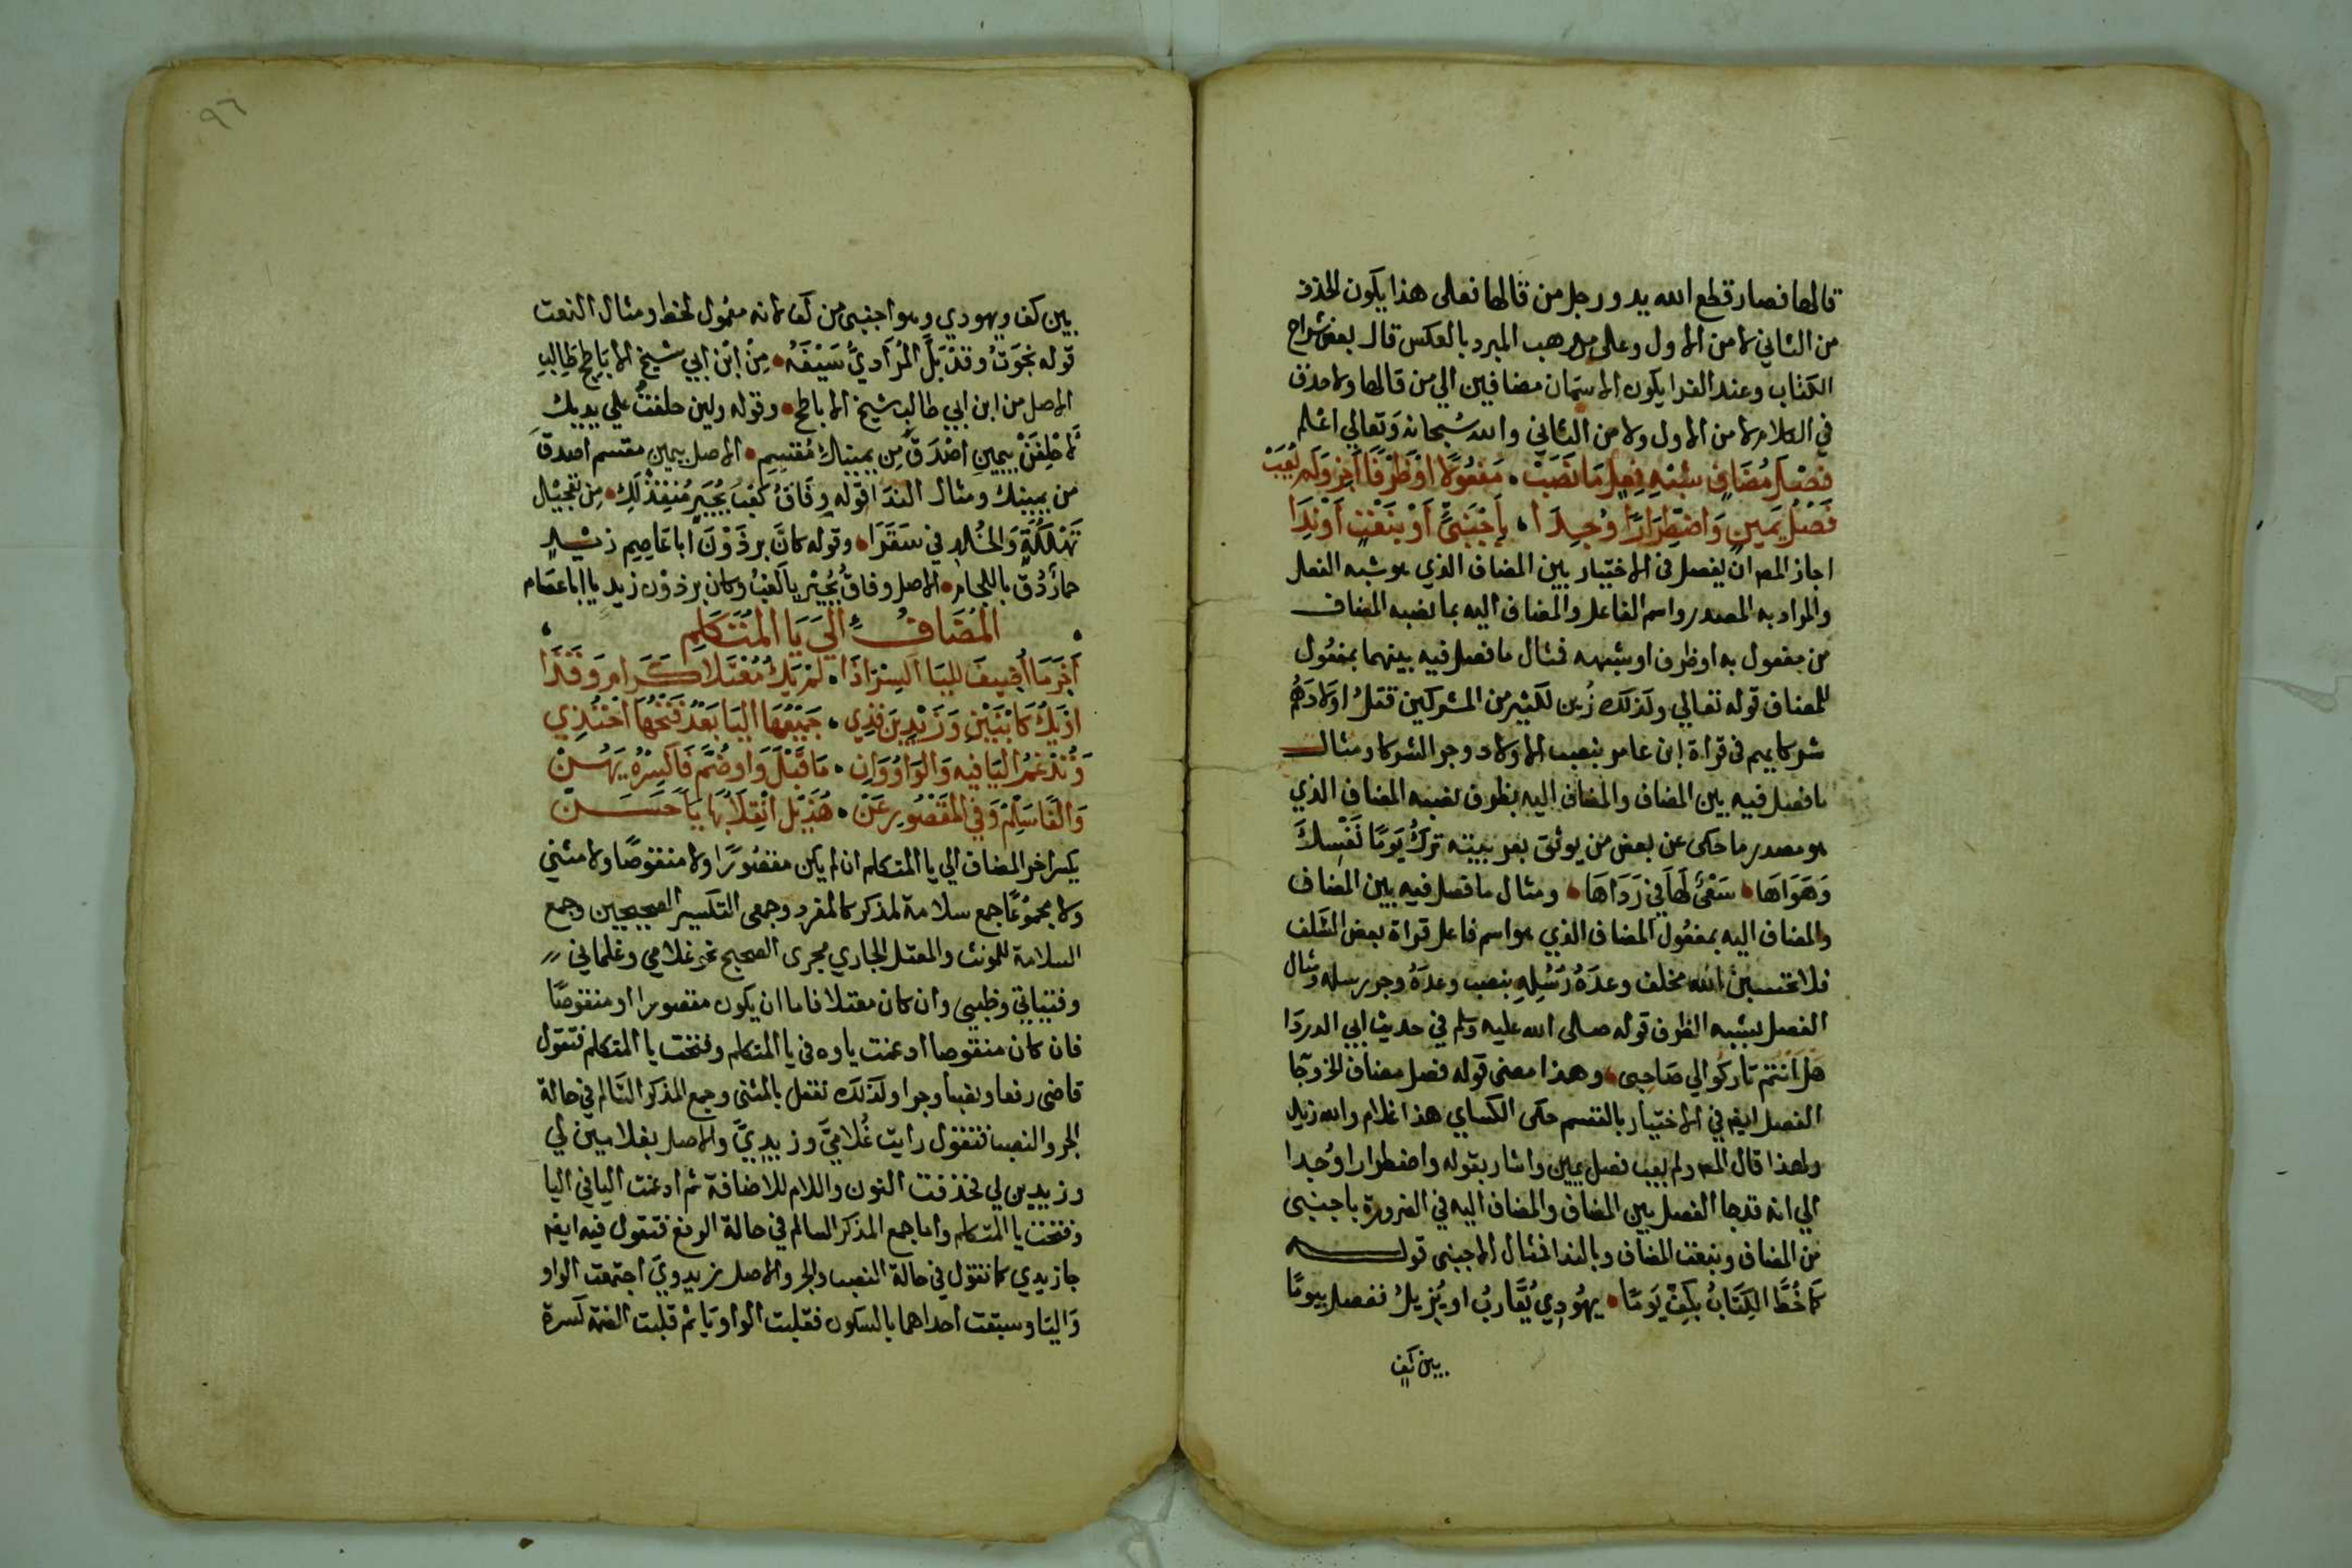 قالها فصار قطع الله يد ورجل من قالها فعلى هذا يكون الحذف
من الثاني لا من الاول وعلى مذهب المبرد بالعكس قال بعض شراح
الكتاب وعند الفرا يكون الاسمان مضافين الي من قالها ولا حذف
في الكلام لا من الاول ولا من الثاني والله سُبحانه وَتعالي اعلم
فَصْلَ مُضَافٍ شِبْهِ فِعْلٍ مَا نَصَبْ • مَفعُولاً اوْظَرْفًا أَجِز وَلم يُعَبْ
فَصْلُ يَمينٍ وَاضْطِرَارًا وُجِدَا • بِأَجْنَبيٍّ أَوْ بنَعْتٍ أَوْنِدَا
اجاز المص ان يفصل في الاختيار بين المضاف الذي هو شبه الفعل
والمراد به المصدر واسم الفاعل والمضاف اليه بما نصبه المضاف
من مفعول به او ظرف او شبهه فمثال ما فصل فيه بينهما بمفعُول
المضاف قوله تعالي وكذلك زُين لكثير من المشركين قتلُ اولادَهُم
شركايهم في قراة ابن عامر بنصب الاولاد وجر الشركا ومثال
ما فصل فيه بين المضاف والمضاف اليه بظرف نصبه المضاف الذي
هو مصدر ما حكى عن بعض من يوثق بعربيته تركُ يَومًا نَفْسِكَ
وَهَوَاهَا • سَعْيٌ لَهَا في رَدَاهَا • ومثال ما فصل فيه بين المضاف
والمضاف اليه بمفعُول المضاف الذي هو اسم فاعل قراة بعض السَّلف
فلا تحسبن الله مخلف وعدَهُ رُسُلِهِ بنصب وعدَهُ وجر رسله ومثال
الفصل بشبه الظرف قوله صلى الله عليه وسلم في حديث ابي الدردَا
هَل أنتُم تاركو الي صَاحِبى • وهذا معنى قوله فصل مضاف الخ وجَا
الفصل ايضا في الاختيار بالقسم حكى الكساي هذا غلام والله زيدٍ
ولهذا قال المص ولم يعب فصل يمين واشار بقوله واضطرارا وُجدا
الي انه قد جا الفصل بين المضاف والمضاف اليه في الضرورة باجنبى
من المضاف وبنعت المضاف وبالندا فمثال الاجنبى قوله
كمَا خُطَّ الكِتَابُ بكَفِّ يَومًا • يهُودِيٍ يُقَارِبُ او يُزيلُ ففصل بيومًا
بين كف
٩٦
بين كف ويهودي وهو اجنبى من كف لانه معمُول لخط ومثال النعت
قوله نجَوتُ وقدْ بَلَّ المُرَاديُّ سَيْفَهُ • مِنْ ابْن ابي شيخ الابَاطِح طَالِبِ
الاصل من ابن ابي طالب شيخ الاباطح • وقوله ولين حلفتُ علي يديك
لَاحْلِفَنْ بيمينِ اصْدَقَ مِن يمينك مُقسِمِ • الاصل بيمين مقسم اصدقَ
من يمينك ومثال الندا قوله وِفَاقُ كَعْبُ بُجَيْرٍ مُنقِذٌ لَكَ • مِن تَعجيل
تَهْلُكَةٍ وَالخُلْدِ في سَقَرَا • وقوله كانَّ برذَوْنَ ابا عَاصِم زيدٍ
حمارٌ دُقَّ باللجام • الاصل وفاقُ بُجَيْر يا كَعْبُ وكان برذوْن زيدٍ يا ابا عصَام
المُضَافُ إِلَيَ يَا المُتَكَلِّمِ
آخِرَ مَا أُضِيفَ لِليَا اكسِرْ اذَا • لمْ يَكُ مُعْتَلاًّ كَرَامٍ وَقَذَا
اوْيَكُ كَابْنَيْنِ وَزَيْدِينَ فَذِي • جَمِيعُهَا اليَا بَعْدُ فَتْحُهَا احْتُذِي
وَتُدْغمُ اليَا فيهِ وَالوَاوُ وَانِ • مَا قَبْلَ وَاوٍ ضُمَّ فَاكسِرْهُ يَهُنْ
وَالفًا سَلِّمْ وَفي المَقصُورِ عَنْ • هُذَيْلٍ انْقِلَابُهَا يَاءً حَسَنْ
يكسر اخر المضاف الي يا المتكلم ان لم يكن مقصُورًا ولا منقوصًا ولا مثني
ولا مجموعًا جمع سلامة لمذكر كالمفرد وجمعى التكسير الصحيحين وجمع
السلامة للمونث والمعتل الجاري مجرى الصحيح نحو غلامي وغلماني
وفتياتي وظبيى وان كان معتلا فاما ان يكون مقصورا او منقوصًا
فان كان منقوصا ادغمت ياوه في يا المتكلم وفتحت يا المتكلم فتقول
قاضى رفعا ونصبا وجرا وكذلك تفعل بالمثنى وجمع المذكر السَّالم في حالة
الجر والنصب فتقول رايت غُلَاميَّ وزيدِيَّ والاصل بغلامين لي
وزيدين لي فحذفت النون واللام للاضافة ثم ادغمت اليا في اليا
وفتحت يا المتكلم واما جمع المذكر السالم في حالة الرفع فتقول فيه ايضا
جا زيدي كما تقول في حالة النصب والجر والاصل زيدويَ اجتمعت الواو
وَاليا وسبقت احداهما بالسكون فقلبت الواو يَا ثم قلبت الضمة كسرة